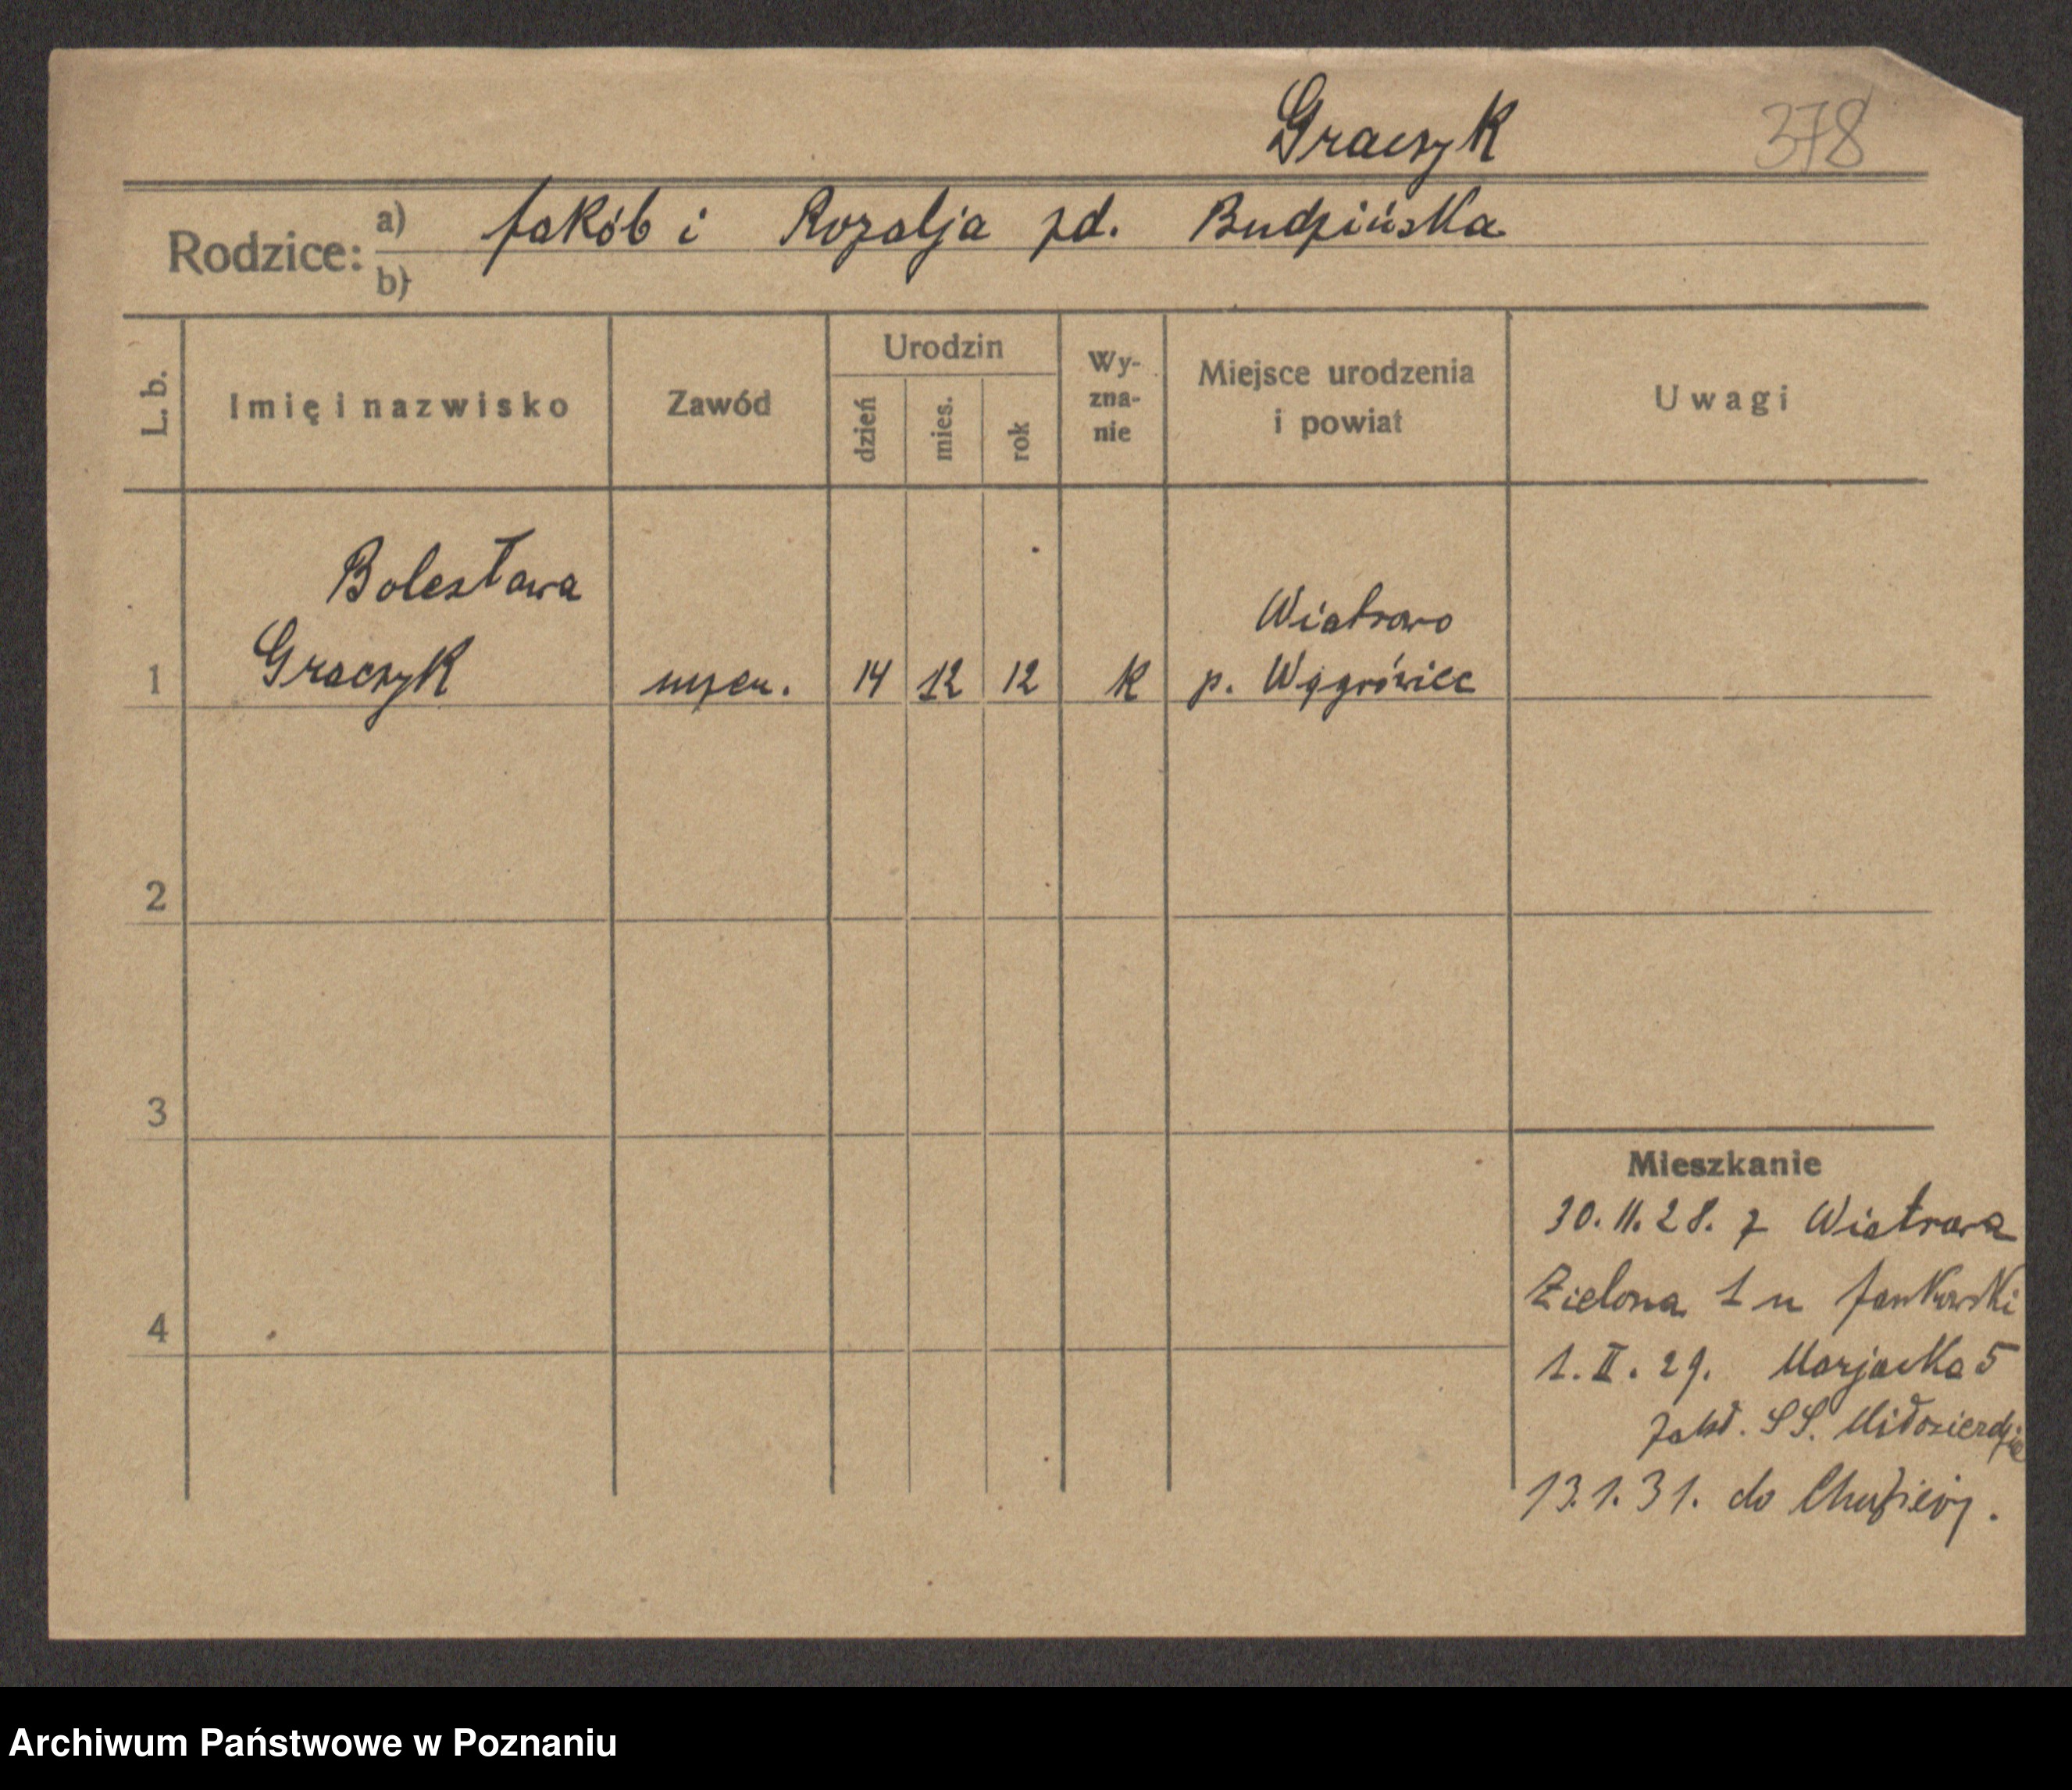 Graczyk 378
Rodzice: a) Jakób i Rozalja zd. Budzińska
b)
L. b. Imię i nazwisko Zawód Urodzin dzień mies. rok Wyznanie Miejsce urodzenia i powiat Uwagi
Bolesława Wiatrowo
1 Graczyk uczen. 14 12 12 K p. Wągrówiec
2
3
Mieszkanie
30.11.28. z Wiatrowa
Zielona 1 u Jankowski
4
1.II.29. Marjacka 5
Zakł. SS. Miłosierdzie
13.1.31. do
Archiwum Państwowe w Poznaniu